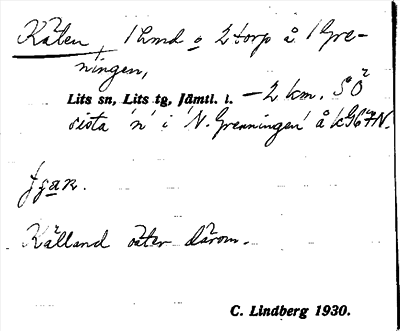 Kälen, 1 hmd o 2 torp å 1 Gre-
ningen,
Lits sn, Lits tg, Jämtl. l. – 2 km. SÖ
sista 'n' i 'N. Grenningen' å kG 67 N.
Källand öster därom.
C. Lindberg 1930.